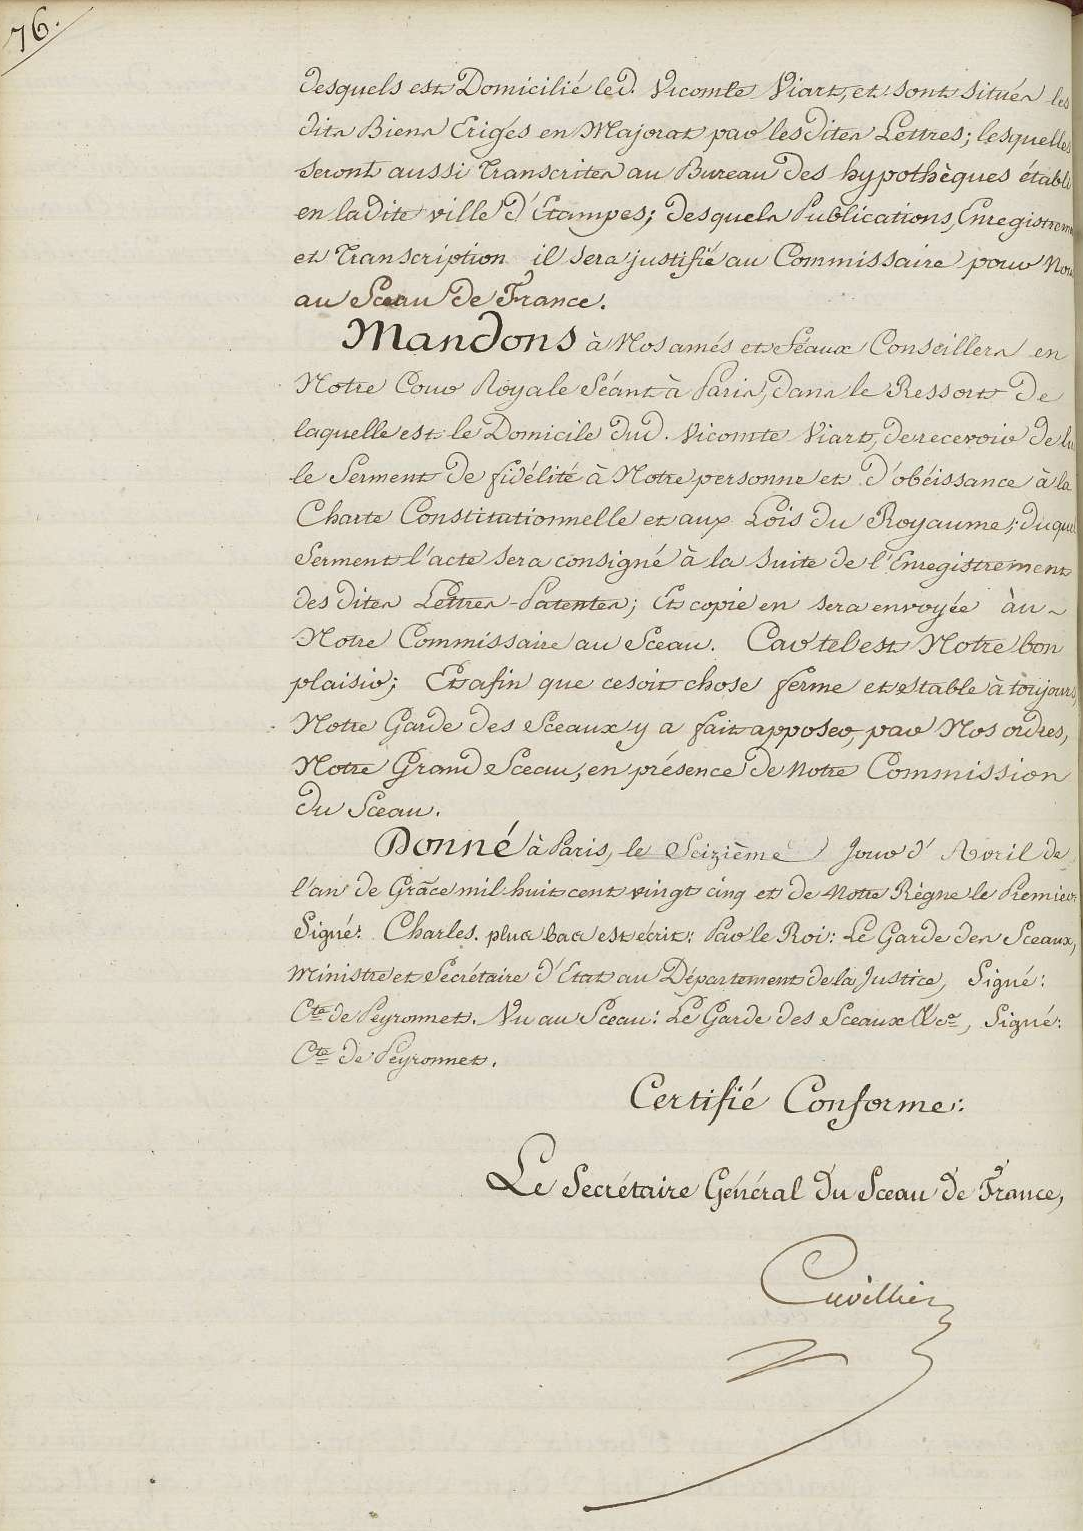 76.
desquels est Domicilié led. Vicomte Viart, et sont situés les
dits Biens Erigés en Majorat par lesdites Lettres; lesquelles
seront aussi Transcrites au Bureau des hypothèques établi
en ladite ville d'Etampes; desquels Publications, Enregistrem
et Transcription il sera justifié au Commissaire pour Nous
au Sceau de France.
Mandons à Nos amés et Féaux Conseillers en
Notre Cour Royale Séant à Paris, dans le Ressort de
laquelle est le Domicile dud. Vicomte Viart, de recevoir de lui
le Serment de fidélité à Notre personne et d'obéissance à la
Charte Constitutionnelle et aux Lois du Royaume; duquel
Serment l'acte sera consigné à la suite de l'Enregistrement
des dites Lettres-Patentes; Et copie en sera envoyée àu
Notre Commissaire au Sceau. Car tel est Notre bon
plaisir; Et afin que ce soit chose ferme et stable à toujours,
Notre Garde des Sceaux y a fait apposer, par Nos ordres,
Notre Grand Sceau, en présence de Notre Commission
du Sceau.
Donné à Paris, le Seizième Jour d'Avril de
l'an de Grâce mil huit cent vingt cinq et de Notre Règne le Premier.
Signé: Charles. plus bas est écrit: Par le Roi: Le Garde des Sceaux,
Ministre et Secrétaire d'Etat au Département de la Justice, Signé:
Cte de Peyronnet. Vu au Sceau: Le Garde des Sceaux &ce, Signé:
Cte de Peyronnet.
Certifié Conforme:
Le Secrétaire Général du Sceau de France,
Cuvillier